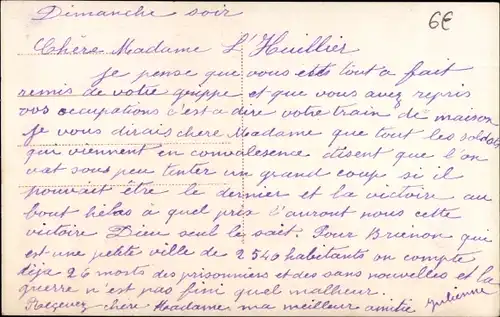 Dimanche soir
6€
Chère Madame L'Huillier
Je pense que vous êtes tout a fait
remis de votre grippe et que vous avez repris
vos occupations c'est a dire votre train de maison
Je vous dirais chere Madame que tout les soldats
qui viennent en convalesence disent que l'on
vat sous peu tenter un grand coup si il
pouvait être le dernier et la victoire au
bout hélas à quel prix l'auront nous cette
victoire Dieu seul le sait. Pour Brienon qui
est une petite ville de 2540 habitants on compte
déja 26 morts des prisonniers et des sans nouvelles et la
guerre n'est pas fini quel malheur.
Recevez chère Madame ma meilleur amitie Julienne